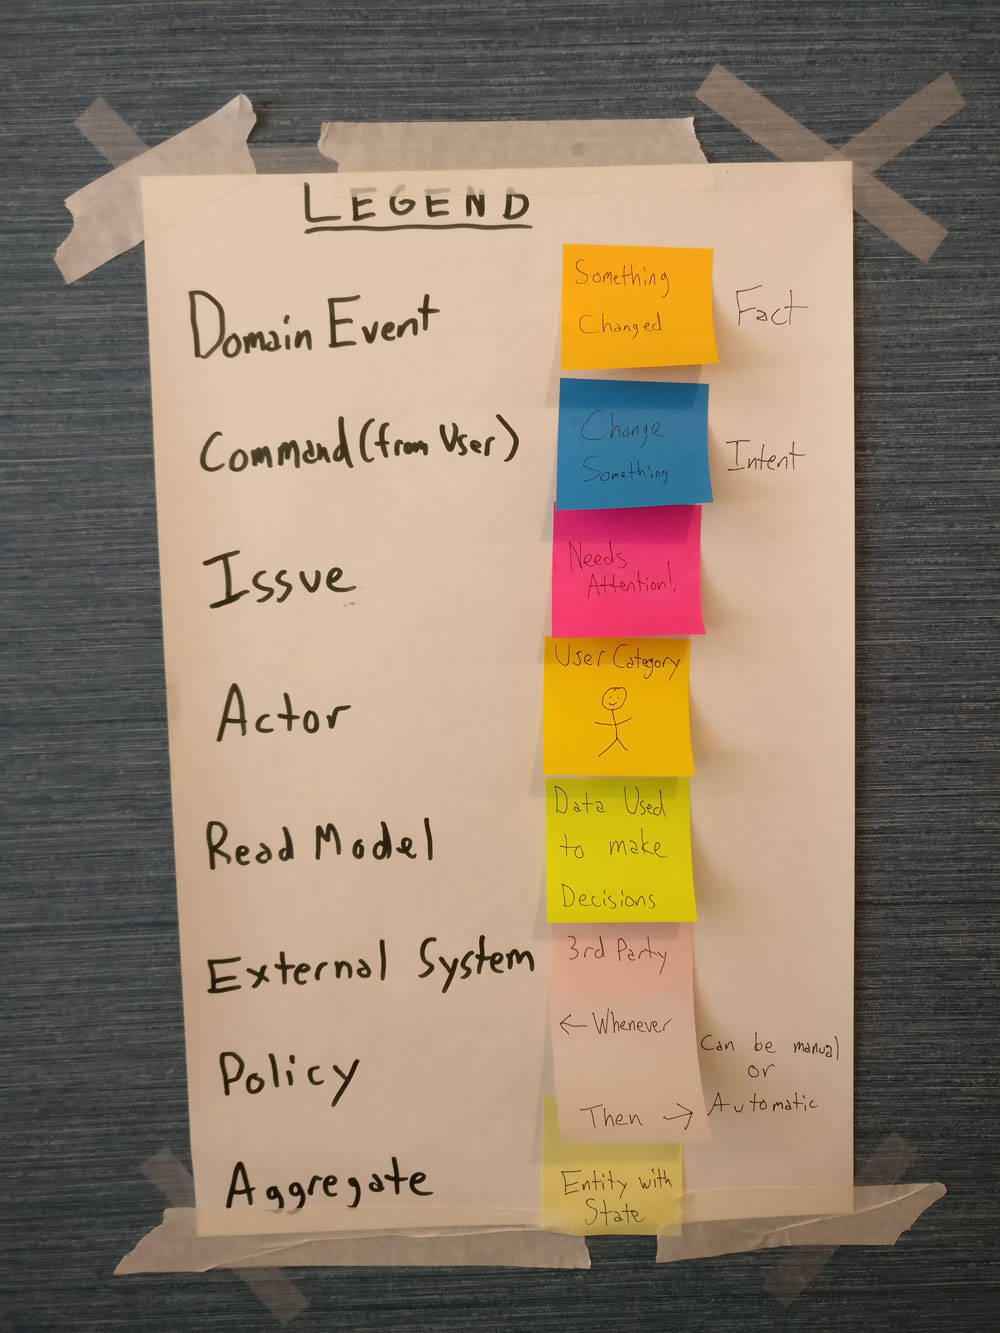 LEGEND
Domain Event
Something
Changed
Fact
Command (from User)
Change
Something
Intent
Issue
Needs
Attention!
Actor
User Category
Read Model
Data Used
to make
Decisions
External System
3rd Party
Policy
← Whenever
Then →
Can be manual
or
Automatic
Aggregate
Entity with
State